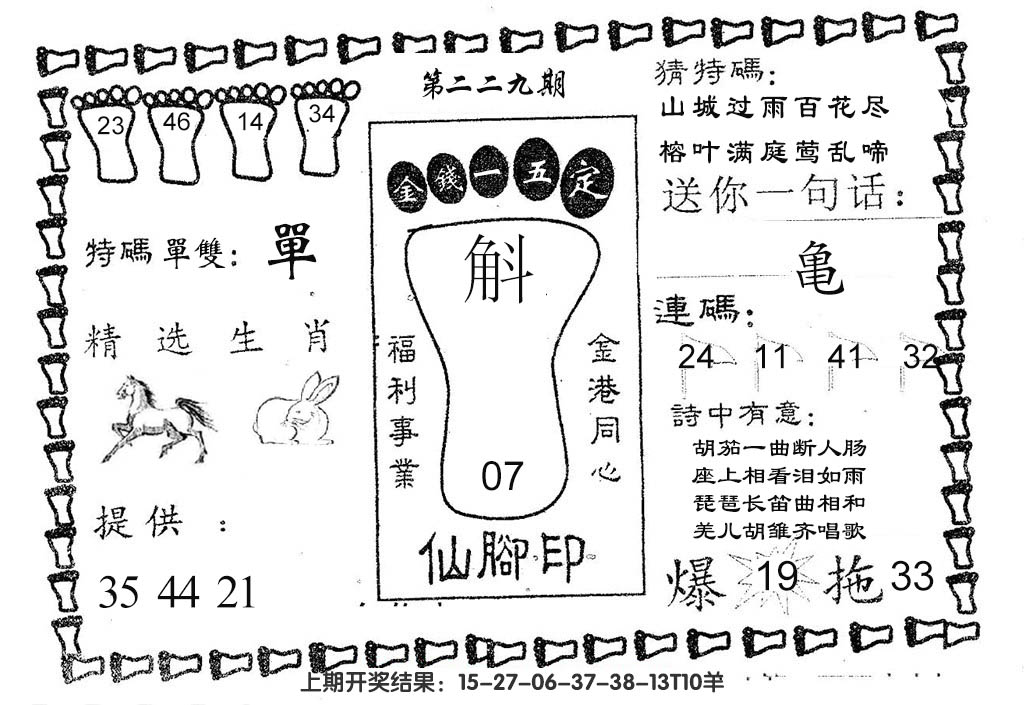 第二二九期
23 46 14 34
特碼單雙：單
精选生肖
提供：
35 44 21
金錢一五定
斛
07
福利事業
金港同心
仙腳印
猜特碼：
山城过雨百花尽
榕叶满庭莺乱啼
送你一句话：
龟
連碼：
24 11 41 32
詩中有意：
胡茄一曲断人肠
座上相看泪如雨
琵琶长笛曲相和
羌儿胡雏齐唱歌
爆 19 拖 33
上期开奖结果：15-27-06-37-38-13T10羊